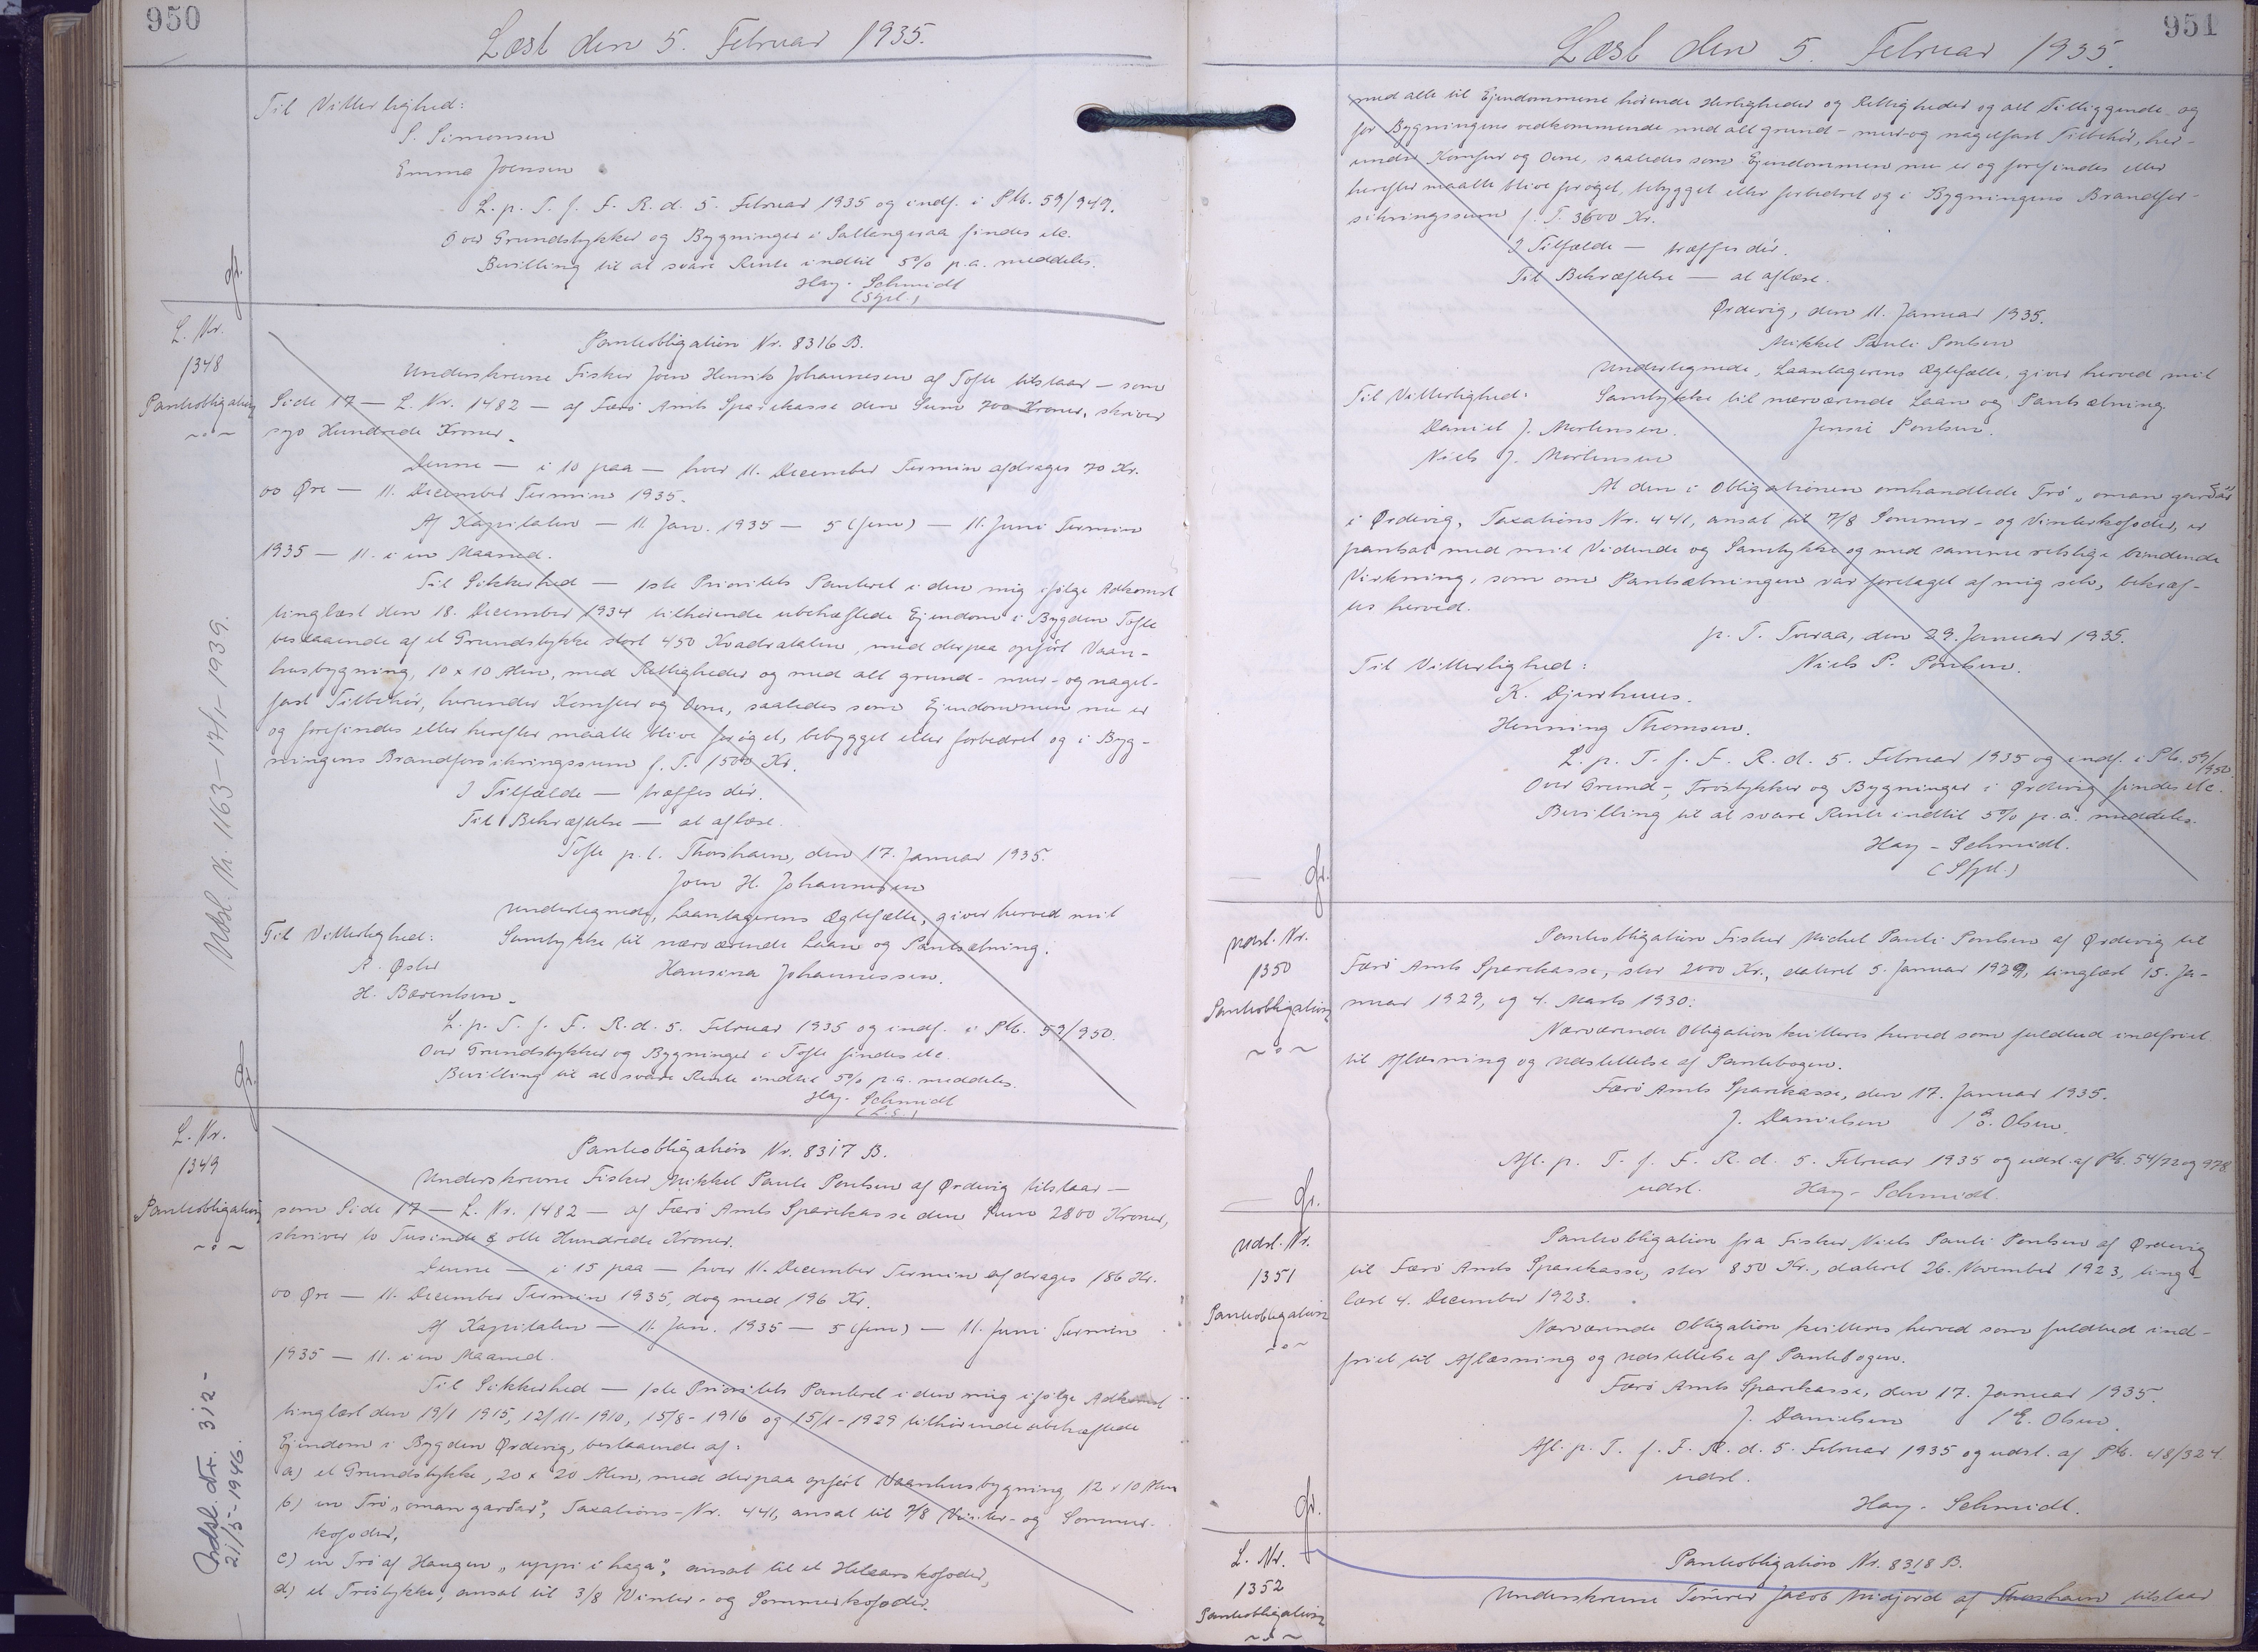 950
Læst den 5. Februar 1935.
Til Vitterlighed:
S. Simonsen
Emma Joensen
L. p. T. f. F. R. d. 5. Februar 1935 og indf. i Pb. 59/949.
Over Grundstykker og Bygninger i Saltangeraa findes etc.
Bevilling til at svare Rente indtil 5% p.a. meddeles.
Hay-Schmidt
L. Nr.
1348
Pantobligation
Udsl. Nr. 1163 - 17/1 - 1939.
Pantobligation Nr. 8316 B.
Underskrevne Fisker Joen Henrik Johannesen af Tofte tilstaar — som
Side 17 — L. Nr. 1482 — af Færø Amts Sparekasse den Sum 700 Kroner, skriver
syv Hundrede Kroner.
Denne — i 10 paa — hver 11. December Termin afdrages 70 Kr.
00 Øre — 11. December Termin 1935.
Af Kapitalen — 11. Jan. 1935 — 5 (fem) — 11. Juni Termin
1935 — 11. i en Maaned.
Til Sikkerhed — 1ste Prioritets Panteret i den mig ifølge Adkomst
tinglæst den 18. December 1934 tilhørende ubehæftede Ejendom i Bygden Tofte
bestaaende af et Grundstykke stort 450 Kvadratalen, med derpaa opført Vaan-
husbygning, 10 x 10 Alen, med Rettigheder og med alt grund- mur- og nagel-
fast Tilbehør, herunder Komfur og Ovne, saaledes som Ejendommen nu er
og forefindes eller herefter maatte blive forøget, bebygget eller forbedret og i Byg-
ningens Brandforsikringssum f. T. 1500 Kr.
I Tilfælde — træffes dér.
Til Bekræftelse — at aflæse.
Tofte p.t. Thorshavn, den 17. Januar 1935.
Joen H. Johannesen
Undertegnede, Laantagerens Ægtefælle, giver herved mit
Til Vitterlighed: Samtykke til nærværende Laan og Pantsætning.
A. Øster Hansina Johannessen.
H. Bærentsen.
L. p. T. f. F. R. d. 5. Februar 1935 og indf. i Pb. 59/950.
Over Grundstykker og Bygninger i Tofte findes etc.
Bevilling til at svare Rente indtil 5% p.a. meddeles.
Hay-Schmidt
L. Nr.
1349
Pantobligation
Udsl. Nr. 312 -
21/5-1946.
Pantobligation Nr. 8317 B.
Underskrevne Fisker Mikkel Pauli Poulsen af Ørdevig tilstaar —
som Side 17 — L. Nr. 1482 — af Færø Amts Sparekasse den Sum 2800 Kroner,
skriver to Tusinde & otte Hundrede Kroner.
Denne — i 15 paa — hver 11. December Termin afdrages 186 Kr.
00 Øre — 11. December Termin 1935, dog med 196 Kr.
Af Kapitalen — 11. Jan. 1935 — 5 (fem) — 11. Juni Termin
1935 — 11. i en Maaned.
Til Sikkerhed — 1ste Prioritets Panteret i den mig ifølge Adkomst
tinglæst den 19/1 1915, 12/11-1910, 15/8-1916 og 15/1-1929 tilhørende ubehæftede
Ejendom i Bygden Ørdevig, bestaaende af:
a) et Grundstykke, 20 x 20 Alen, med derpaa opført Vaanhusbygning 12 x 10 Alen
b) en Trø „oman garðar", Taxations-Nr. 441, ansat til 7/8 Vinter- og Sommer-
kofoder,
c) en Trø af Haugen „uppi í haga", ansat til et Helaarskofoder,
d) et Trøstykke, ansat til 3/8 Vinter- og Sommerkofoder.
951
Læst den 5. Februar 1935.
med alle til Ejendommene hørende Herligheder og Rettigheder og alt Tilliggende og
for Bygningens vedkommende med alt grund- mur- og nagelfast Tilbehør, her-
under Komfur og Ovne, saaledes som Ejendommen nu er og forefindes eller
herefter maatte blive forøget, bebygget eller forbedret og i Bygningens Brandfor-
sikringssum f. T. 3600 Kr.
I Tilfælde — træffes dér.
Til Bekræftelse — at aflæse.
Ørdevig, den 11. Januar 1935.
Mikkel Pauli Poulsen
Undertegnede, Laantagerens Ægtefælle, giver herved mit
Til Vitterlighed: Samtykke til nærværende Laan og Pantsætning.
Daniel J. Mortensen. Jensie Poulsen.
Niels J. Mortensen
At den i Obligationen omhandlede Trø „oman garðar"
i Ørdevig, Taxations Nr. 441, ansat til 7/8 Sommer- og Vinterkofoder, er
pantsat med mit Vidende og Samtykke og med samme retslige bindende
Virkning, som om Pantsætningen var foretaget af mig selv, bekræf-
tes herved.
p. T. Tveraa, den 29. Januar 1935.
Til Vitterlighed: Niels P. Poulsen.
K. Djurhuus.
Henning Thomsen.
L. p. T. f. F. R. d. 5. Februar 1935 og indf. i Pb. 59/950.
Over Grund-, Trøstykker og Bygninger i Ørdevig findes etc.
Bevilling til at svare Rente indtil 5% p.a. meddeles.
Hay-Schmidt.
Udsl. Nr.
1350
Pantobligation
Pantobligation Fisker Michel Pauli Poulsen af Ørdevig til
Færø Amts Sparekasse, stor 2000 Kr., dateret 5. Januar 1929, tinglæst 15. Ja-
nuar 1929, og 4. Marts 1930:
Nærværende Obligation kvitteres herved som fuldtud indfriet
til Aflæsning og Udslettelse af Pantebogen.
Færø Amts Sparekasse, den 17. Januar 1935.
J. Danielsen / E. Olsen.
Afl. p. T. f. F. R. d. 5. Februar 1935 og udsl. af Pb. 54/72 og 978
udsl. Hay-Schmidt.
Udsl. Nr.
1351
Pantobligation
Pantobligation fra Fisker Niels Pauli Poulsen af Ørdevig
til Færø Amts Sparekasse, stor 850 Kr., dateret 26. November 1923, ting-
læst 4. December 1923.
Nærværende Obligation kvitteres herved som fuldtud ind-
friet til Aflæsning og Udslettelse af Pantebogen.
Færø Amts Sparekasse, den 17. Januar 1935.
J. Danielsen / E. Olsen.
Afl. p. T. f. F. R. d. 5. Februar 1935 og udsl. af Pb. 48/324.
udsl.
Hay-Schmidt.
L. Nr.
1352
Pantobligation
Pantobligation Nr. 8318 B.
Underskrevne Tømrer Jacob Midjord af Thorshavn tilstaar